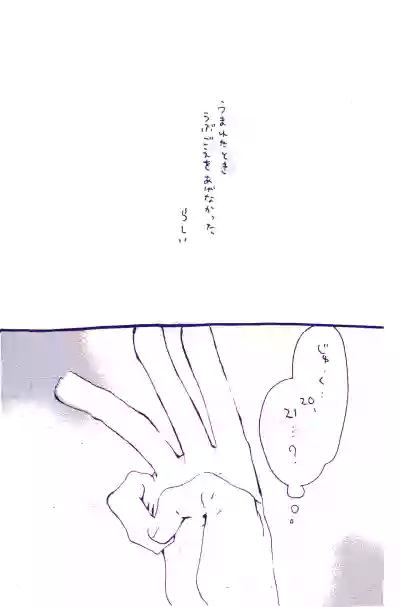 うまれたとき
うぶごえをあげなかった
らしい
じゅく…
20、
21…?